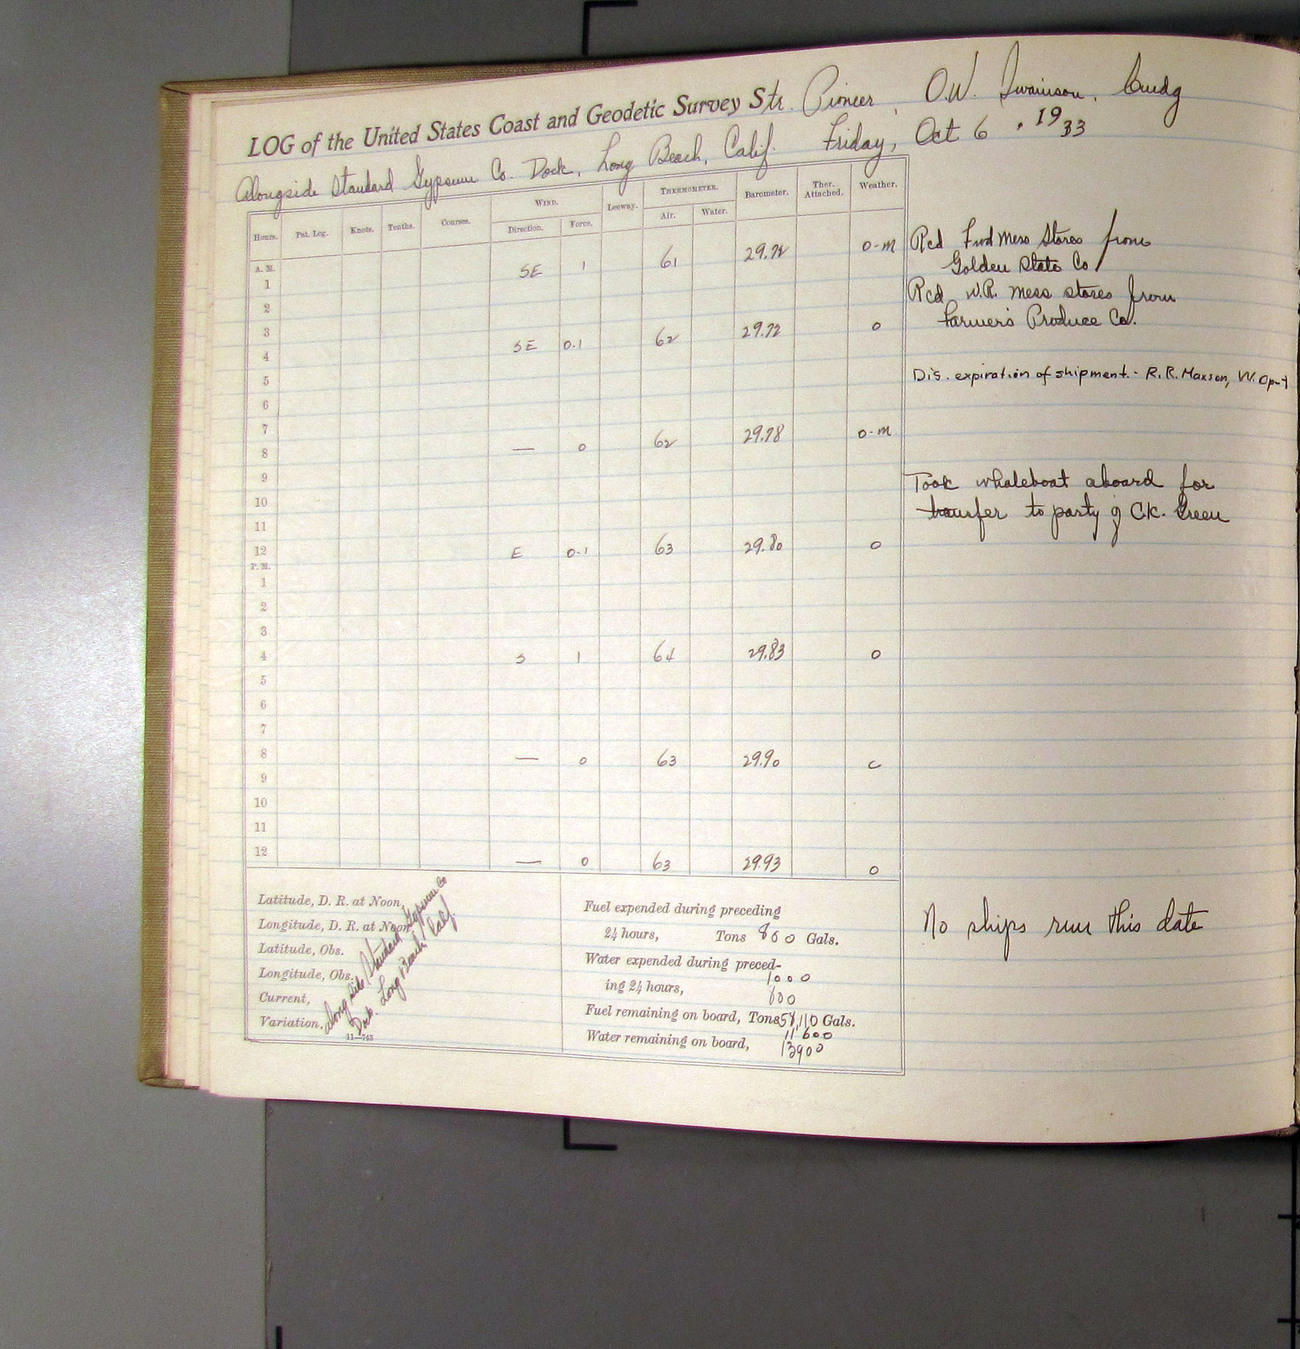 LOG of the United States Coast and Geodetic Survey Str. Pioneer, O.W. Swainson, Cmdg
Alongside Standard Gypsum Co. Dock, Long Beach, Calif. Friday, Oct 6, 1933
Hours. Pat. Log. Knots. Tenths. Courses. WIND. Direction. Force. Leeway. THERMOMETER. Air. Water. Barometer. Ther. Attached. Weather.
A. M. SE 1 61 29.72 o-m Rcd Fwd Mess Stores from
1 Golden State Co
2 Rcd W.R. Mess stores from
3 Farmer's Produce Co.
4 SE 0-1 62 29.72 o
5 Dis. expiration of shipment - R. R. Maxson, W. Op-1
6
7
8 — 0 62 29.78 o-m
9 Took whaleboat aboard for
10 transfer to party of C.K. Green
11
12 E 0-1 63 29.80 o
P. M.
1
2
3
4 S 1 64 29.83 o
5
6
7
8 — 0 63 29.90 c
9
10
11
12 — 0 63 29.93 o
No ships run this date
Latitude, D. R. at Noon,
Longitude, D. R. at Noon,
Latitude, Obs.
Longitude, Obs.
Current,
Variation,
Along side Standard Gypsum Co
Dock. Long Beach Calif.
11—763
Fuel expended during preceding
24 hours, Tons 860 Gals.
Water expended during preced-
ing 24 hours, 1000
800
Fuel remaining on board, Tons 58,110 Gals.
11600
Water remaining on board, 13900